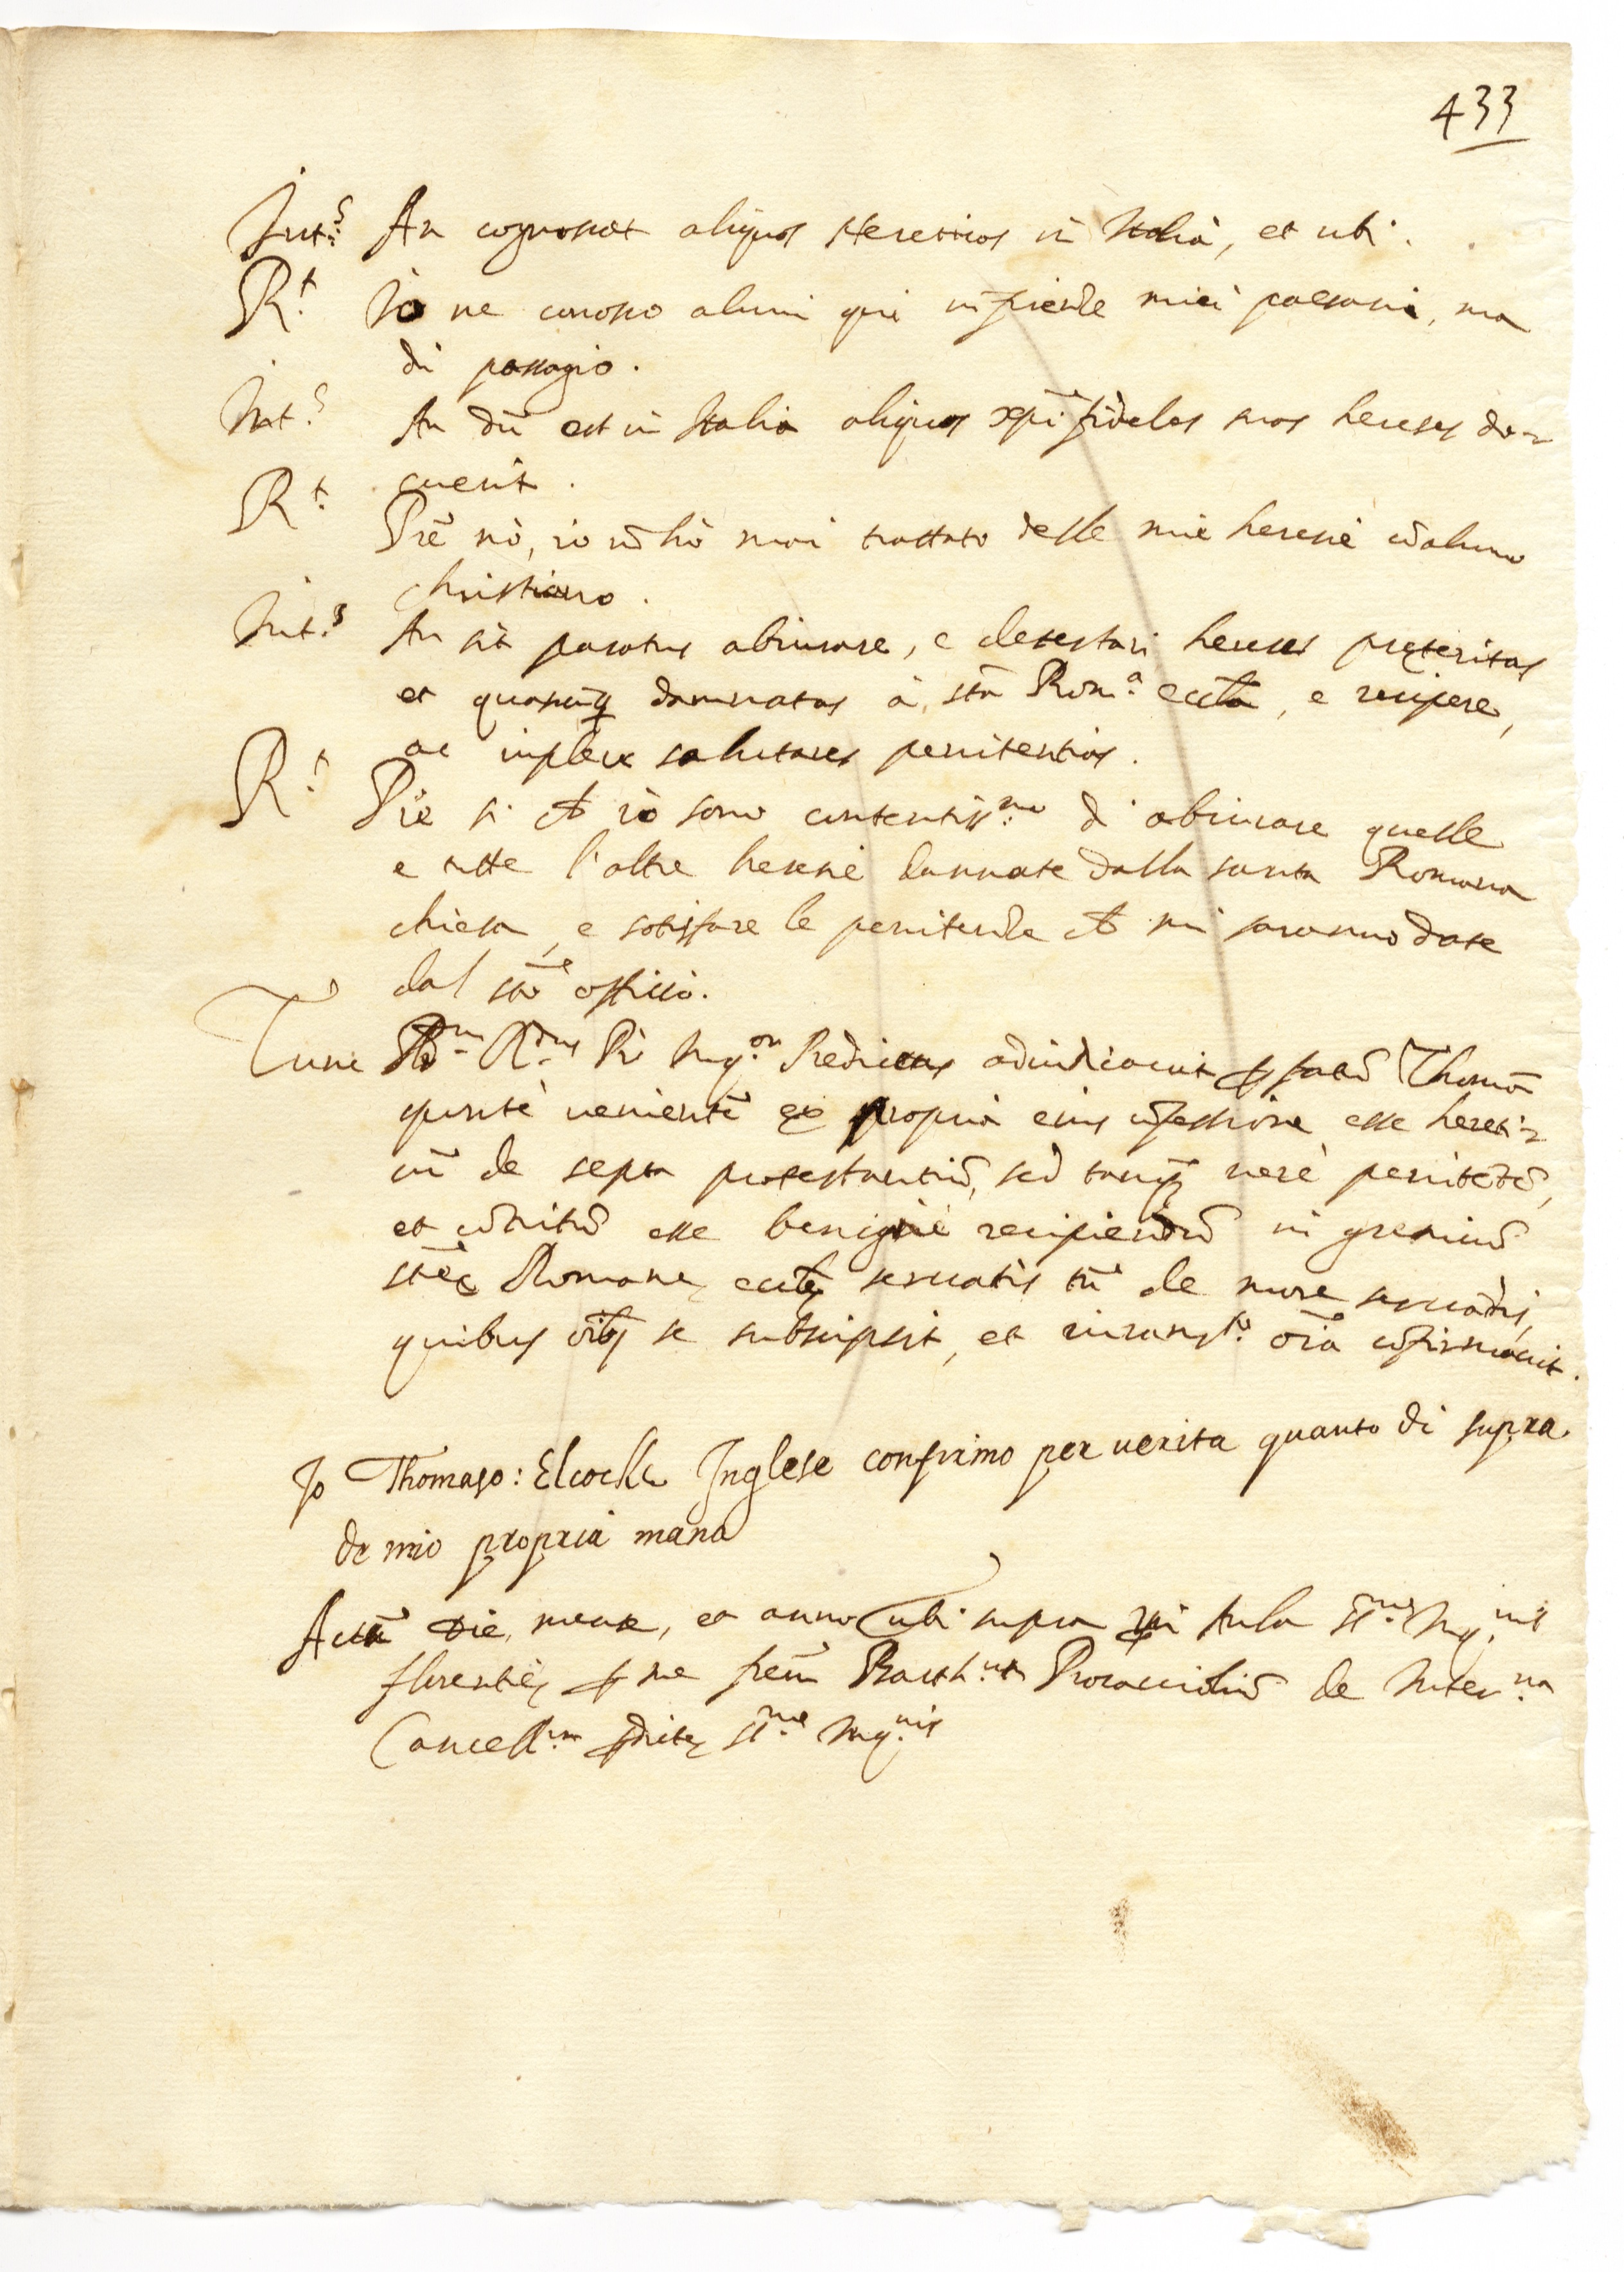 433
Int.s An cognoscat aliquos Hereticos in Italia, et ubi.
R.t Io ne conosco alcuni qui in firenze miei paesani, ma
di passagio.
Int.s An dũ est in Italia aliquos xp̃i fideles suas hereses do-
cuerit.
R.t Prẽ nò, io nõ hò mai trattato delle mie heresie cõ alcuno
christiano.
Int.s An sit paratus abiurare, e detestari hereses preteritas
et quascuq damnatas à stã Rom.a ecclã, e recipere,
ac implere salutares penitentias.
R.t Prẽ si io sono contentiss.mo d'abiurare quelle
e tutte l'altre heresie dannate dalla santa Romana
chiesa, e sotisfare le penitenze mi saranno date
dal stõ officio.
Tunc R.dus P̃r Inq.or Predictus adiudicavit Thomã
venientẽ ex propria eius cõfessione esse hereti-
cũ de septa protestantiũ, sed tanq̃ verè penitẽtẽ,
et cõtritũ esse benignè recipiendũ in gremiũ
stẽ Romane ecclẽ servatis tñ de more servãdis,
quibus oĩbs se subscripsit, et iuram.to oĩa cõfirmavit.
Jo Thomaso: Elcocke Inglese confirmo per verita quanto di supra
de mio propria mano
Actũ die, mense, et anno ubi supra in Aula S.me Inq.nis
florentie me frẽm de
Cancell.m S.me Inq.nis